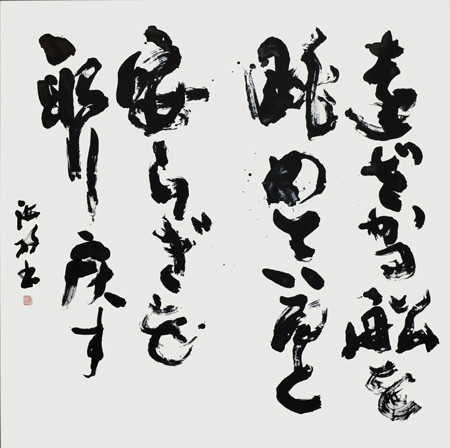 遠ざかる船を
眺めていると
安らぎを
取り戻す